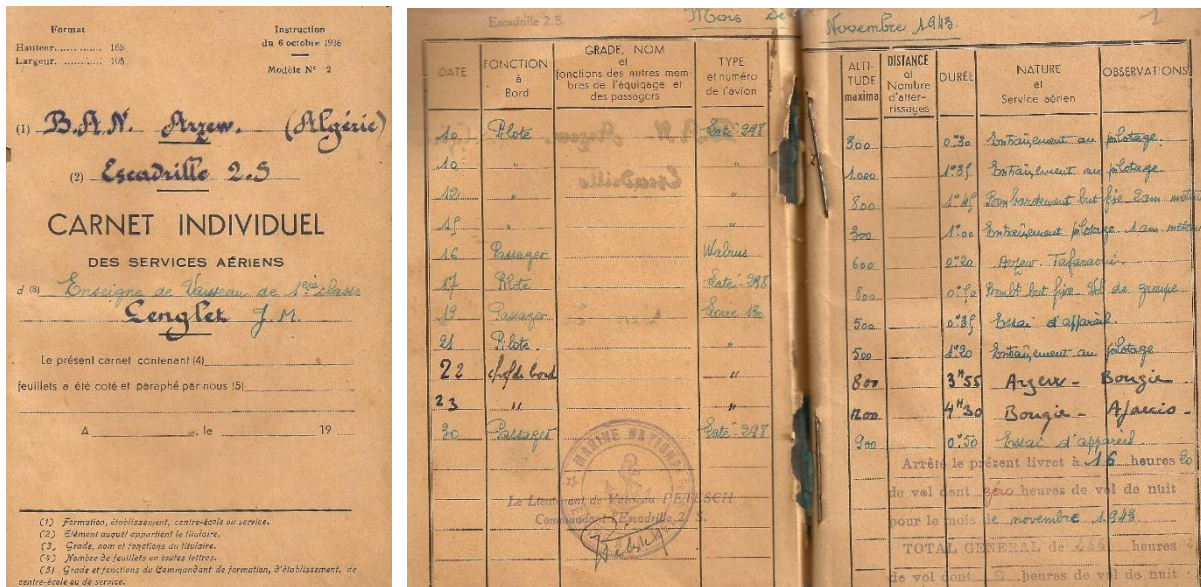 Format
Hauteur............... 165
Largeur. ............ 105
Instruction
du 6 octobre 1936
Modèle N° 2
(1) B.A.N. Arzew. (Algérie)
(2) Escadrille 2.S
CARNET INDIVIDUEL
DES SERVICES AÉRIENS
d (3) Enseigne de Vaisseau de 1ère classe
Lenglet J.M.
Le présent carnet contenant (4)
feuillets a été coté et paraphé par nous (5)
A , le 19
(1) Formation, établissement, centre-école ou service.
(2) Elément auquel appartient le titulaire.
(3) Grade, nom et fonctions du titulaire.
(4) Nombre de feuillets en toutes lettres.
(5) Grade et fonctions du Commandant de formation, d'établissement, de
centre-école ou de service.
Escadrille 2.S.
Mois de Novembre 1943. 1
DATE FONCTION à Bord GRADE, NOM et fonctions des autres membres de l'équipage et des passagers TYPE et numéro de l'avion ALTITUDE maxima DISTANCE et Nombre d'atterrissages DURÉE NATURE et Service aérien OBSERVATIONS
10 Pilote Laté-298 300 0h30 Entraînement au pilotage.
10 " " 1.000 1h35 Entraînement au pilotage
12 " " 800 1h45 Bombardement but fixe 2am
15 " " 300 1h00 Entraînement pilotage 1am
16 Passager Walrus 600 0h20 Arzew. Tafaraoui.
17 Pilote Laté-298 800 0h50 Bombt but fixe. Vol de groupe
19 Passager Loire 130 500 0h35 Essai d'appareil.
21 Pilote. " 500 1h20 Entraînement au pilotage
22 chef de bord " 800 3H55 Arzew - Bougie
23 " " 1200 4H30 Bougie - Ajaccio -
30 Passager Laté-298 900 0h50 Essai d'appareil
MARINE NATIONALE
Le Lieutenant de Vaisseau PETESCH
Commandant l'Escadrille 2. S.
Arrêté le présent livret à 16 heures 20
de vol dont zéro heures de vol de nuit
pour le mois de novembre 1943
TOTAL GENERAL de heures
de vol dont heures de vol de nuit